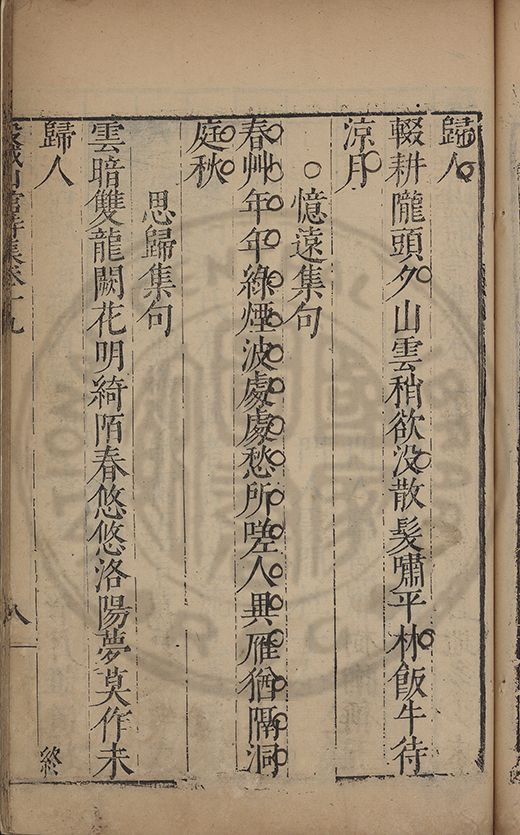 歸人
輟耕隴頭夕山雲稍欲没散髮嘯平林飯牛待
涼月
○憶遠集句
春艸年年綠煙波處處愁所嗟人異雁猶隔洞
庭秋
思歸集句
雲暗雙龍闕花明綺陌春悠悠洛陽夢莫作未
歸人
終
八